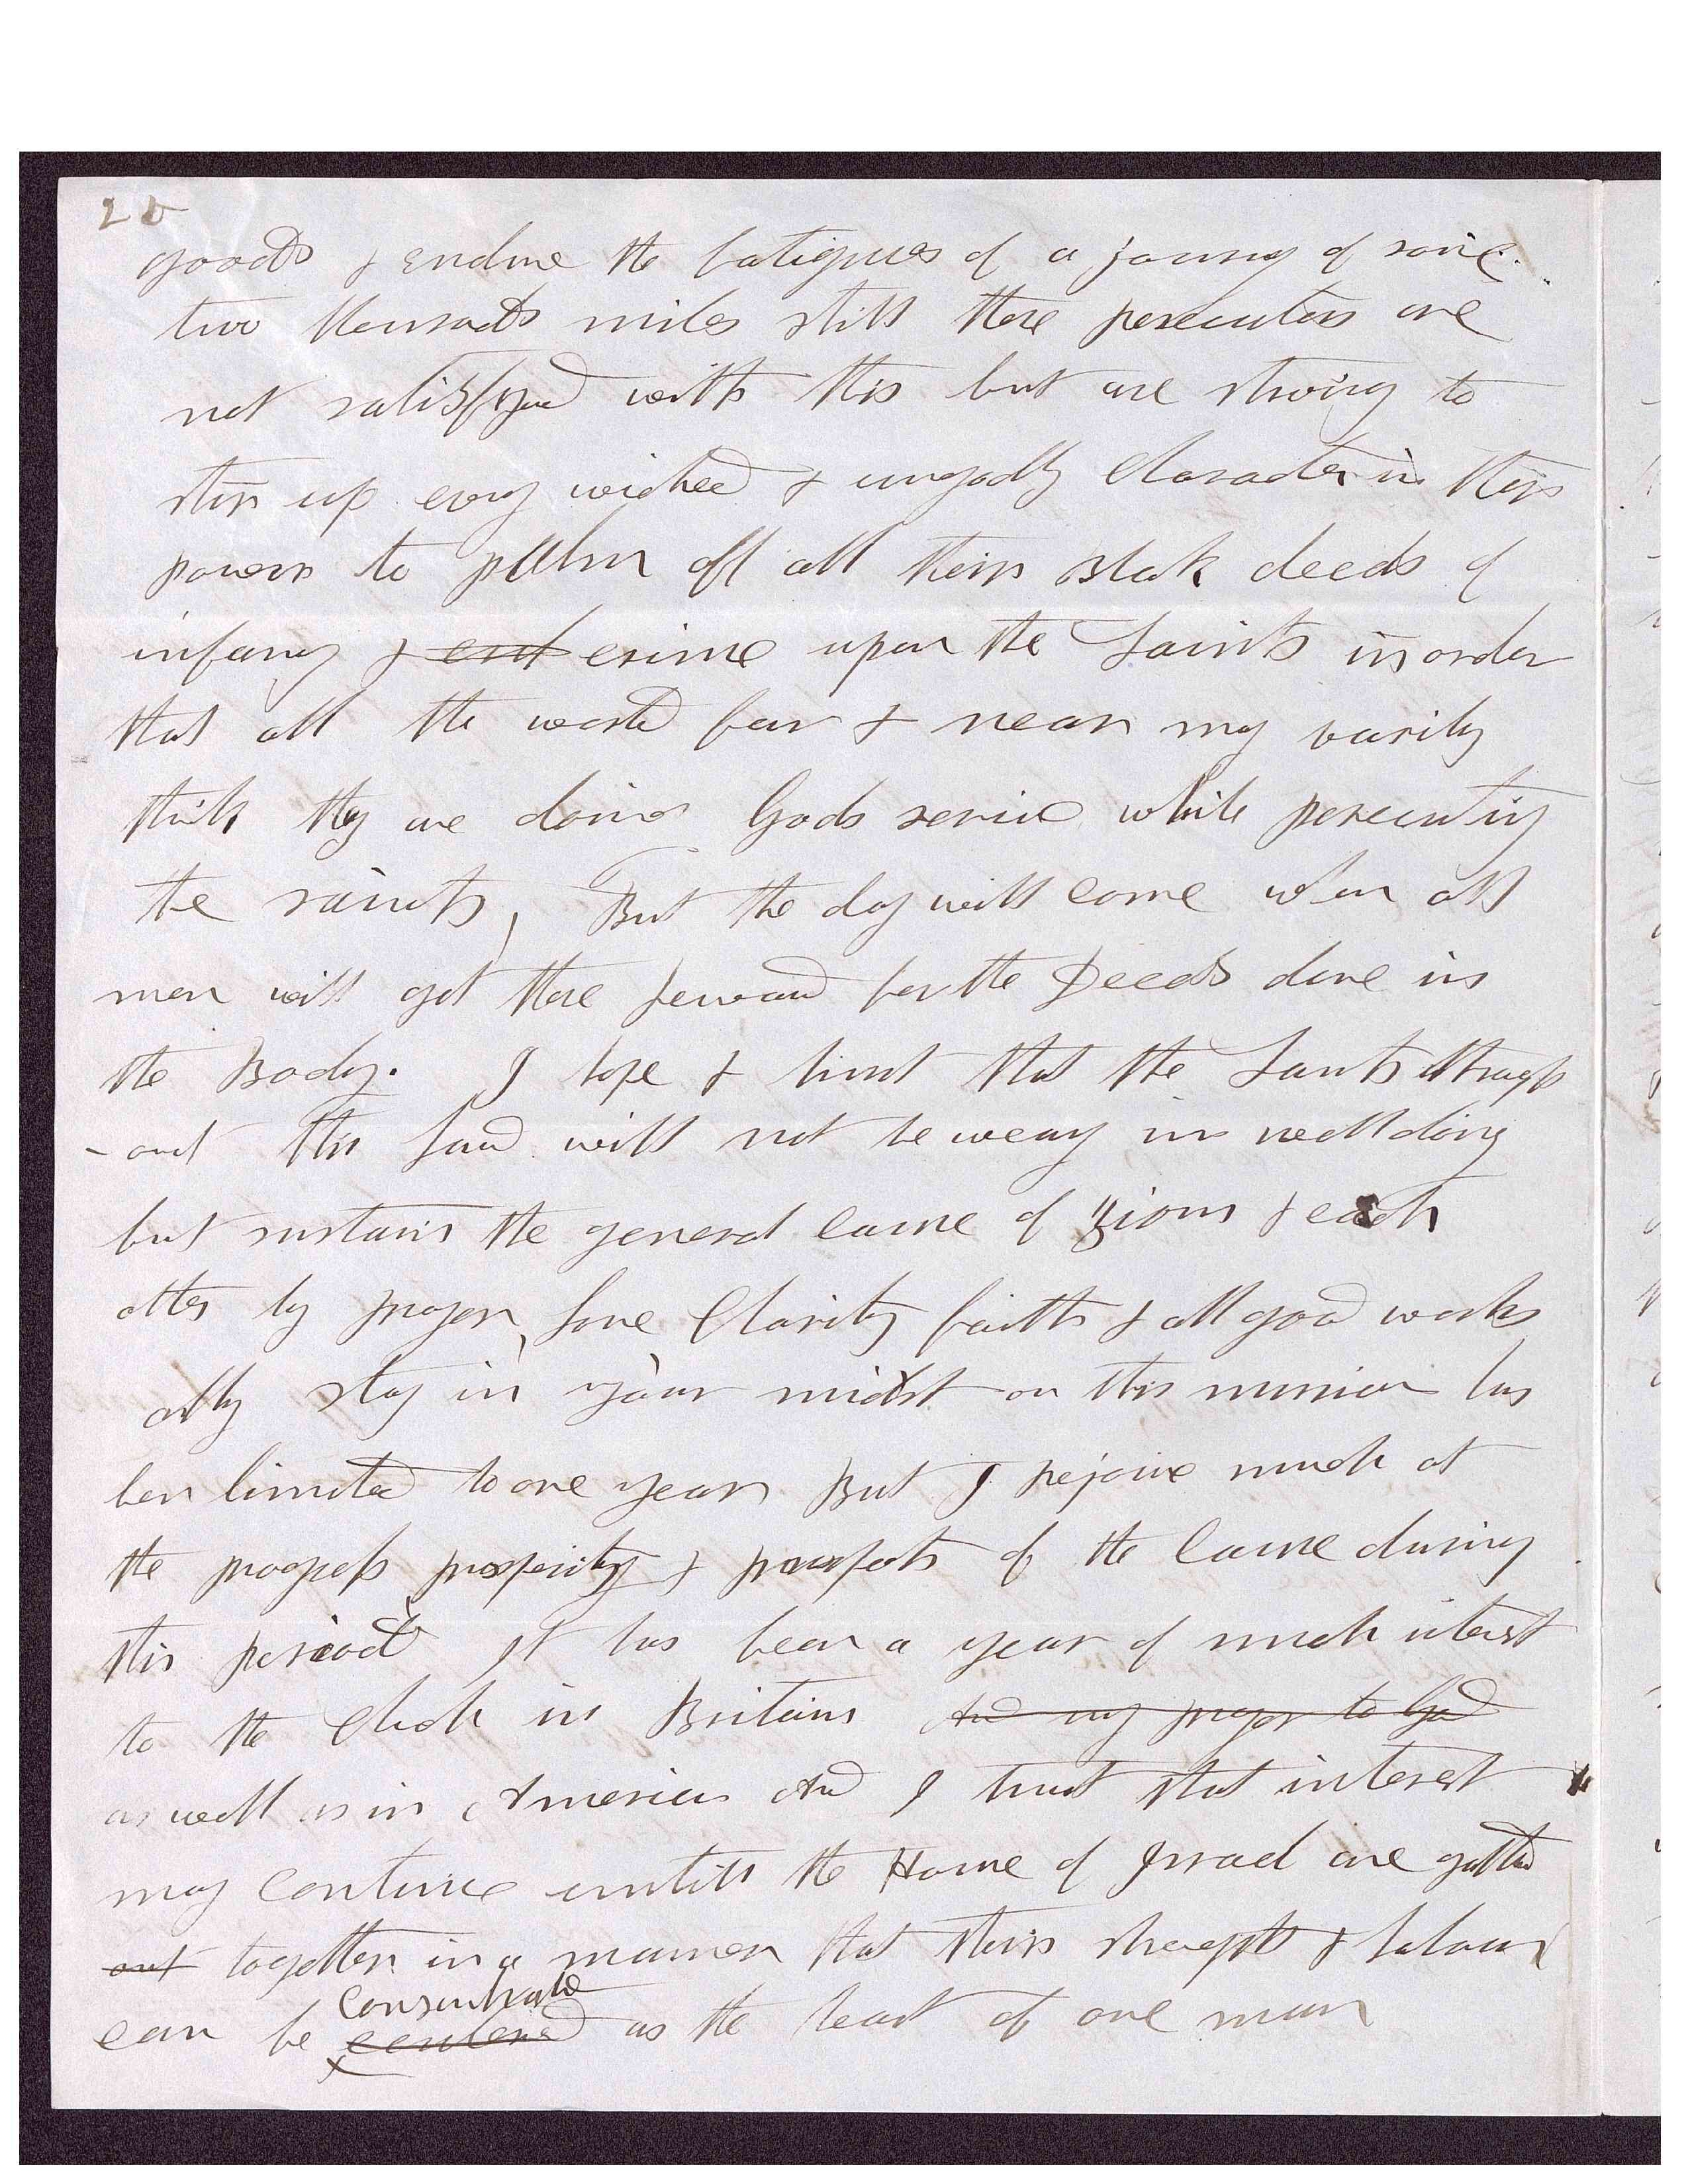 goods & endure the fatigues of a journy of some
two thousands miles still there persecutors are
not satisfyed with this but are striving to
stir up evry wicked & ungodly Character in their
power to palm off all their Black deeds of
infamy & crime upon the Saints in order
that all the world far & near my
think they are doing Gods service while persecuting
the saints, But the day will come when all
men will get there reward for the Deeds done in
the Body. I hope & trust that the Saints through
-out this land will not be weary in well doing
but sustain the general cause of Zion & each
other by prayer, love Charity faith & all good works
stay in your midst on this mission has
ben limited to one year But I rejoice much at
the progress prosperity & prospects of the cause during
this period It has been a year of much interest
to the Church in Britain And my prayer to God
as well as in America And I trust that interest
may continue untill the House of Israel are gatherd
out together in a manner that their strength & labour
Consentrated
can be centered as the heart of one man